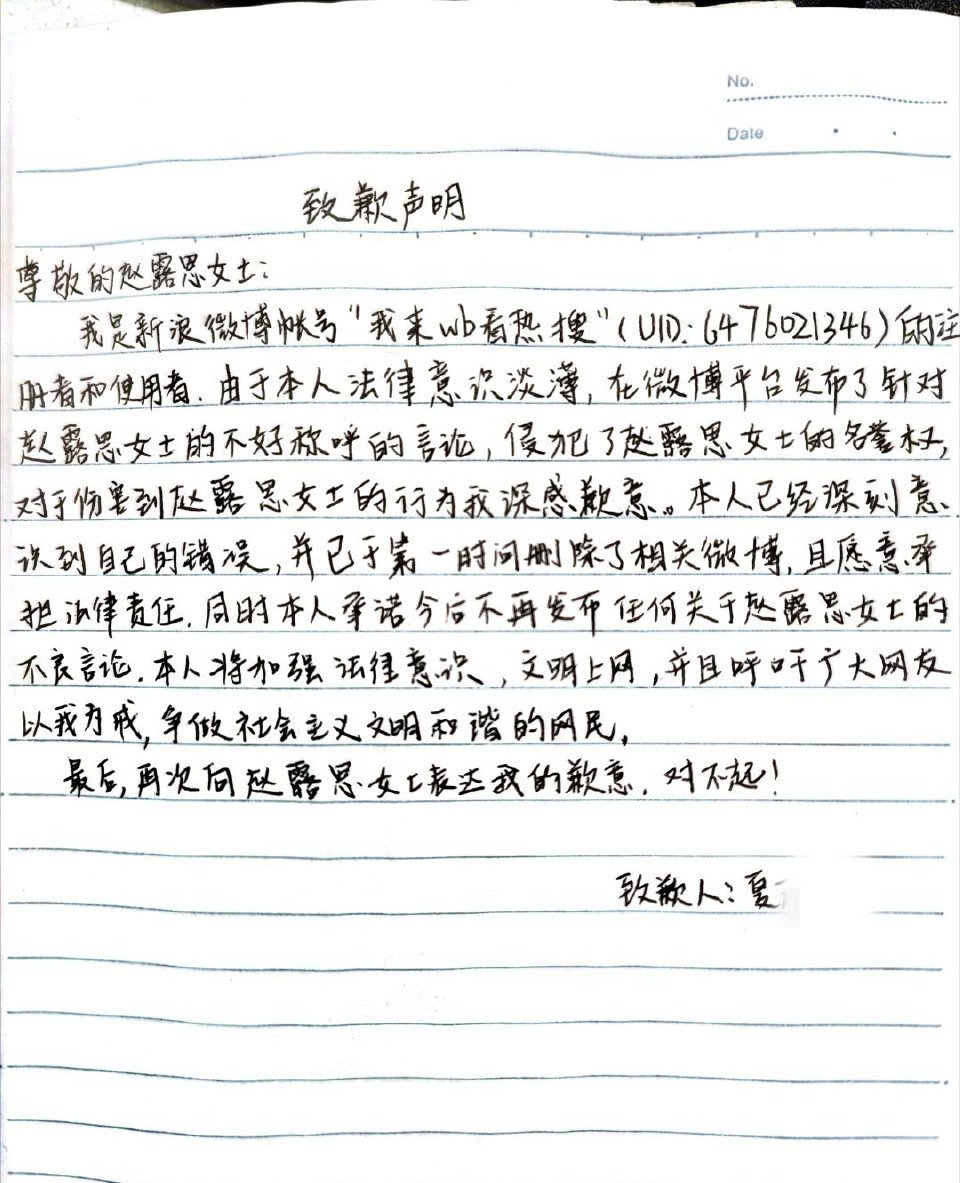 No.
Date
致歉声明
尊敬的赵露思女士:
我是新浪微博帐号"我来wb看热搜"(UID:6476021346)的注
册者和使用者.由于本人法律意识淡薄,在微博平台发布了针对
赵露思女士的不好称呼的言论,侵犯了赵露思女士的名誉权,
对于伤害到赵露思女士的行为我深感歉意。本人已经深刻意
识到自己的错误,并已于第一时间删除了相关微博,且愿意承
担法律责任.同时本人承诺今后不再发布任何关于赵露思女士的
不良言论.本人将加强法律意识,文明上网,并且呼吁广大网友
以我为戒,争做社会主义文明和谐的网民,
最后,再次向赵露思女士表达我的歉意.对不起!
致歉人:夏